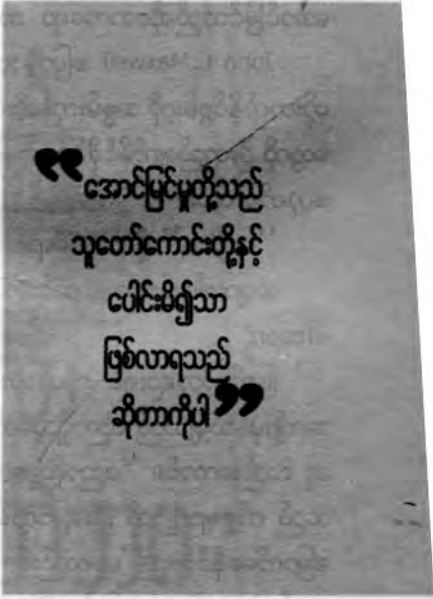 “ အောင်မြင်မှုတို့သည်
သူတော်ကောင်းတို့နှင့်
ပေါင်းမိ၍သာ
ဖြစ်လာရသည်
ဆိုတာကိုပါ ”